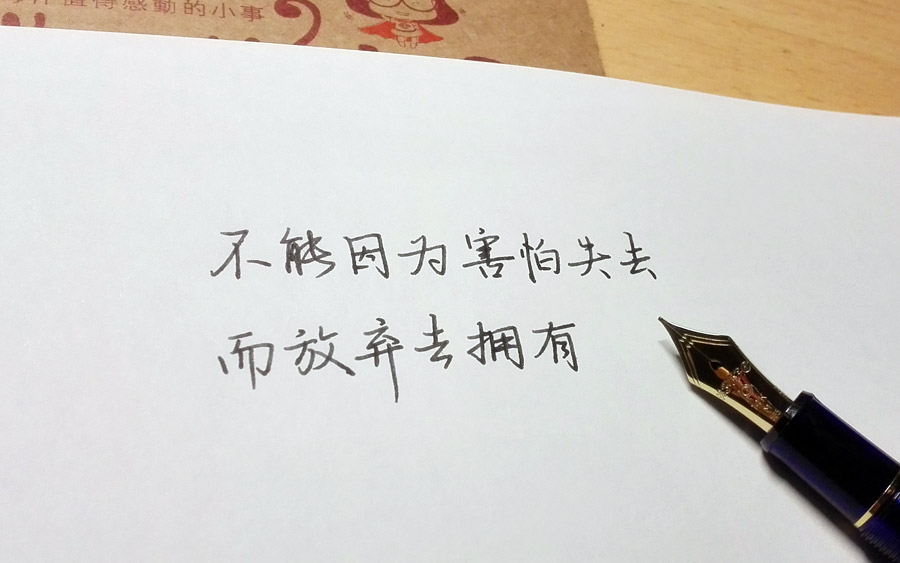 值得感動的小事
不能因为害怕失去
而放弃去拥有